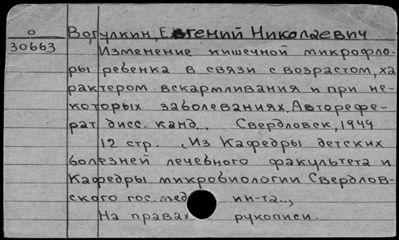 о Вогулкин, Евгений Николаевич
30663 Изменение кишечной микрофло-
ры ребенка в связи с возрастом, ха
рактером вскармливания и при не-
которых заболеваниях. Авторефе-
рат дисс. канд.. Свердловск, 1949
12 стр. Из Кафедры детских
болезней лечебного факультета и
Кафедры микробиологии Свердлов-
ского гос. мед ин-та..,
На правах рукописи.